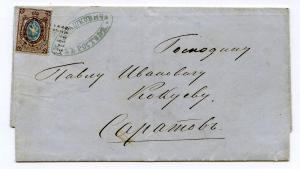 Господину
Павлу Ивановичу
Кокуеву
Саратовъ